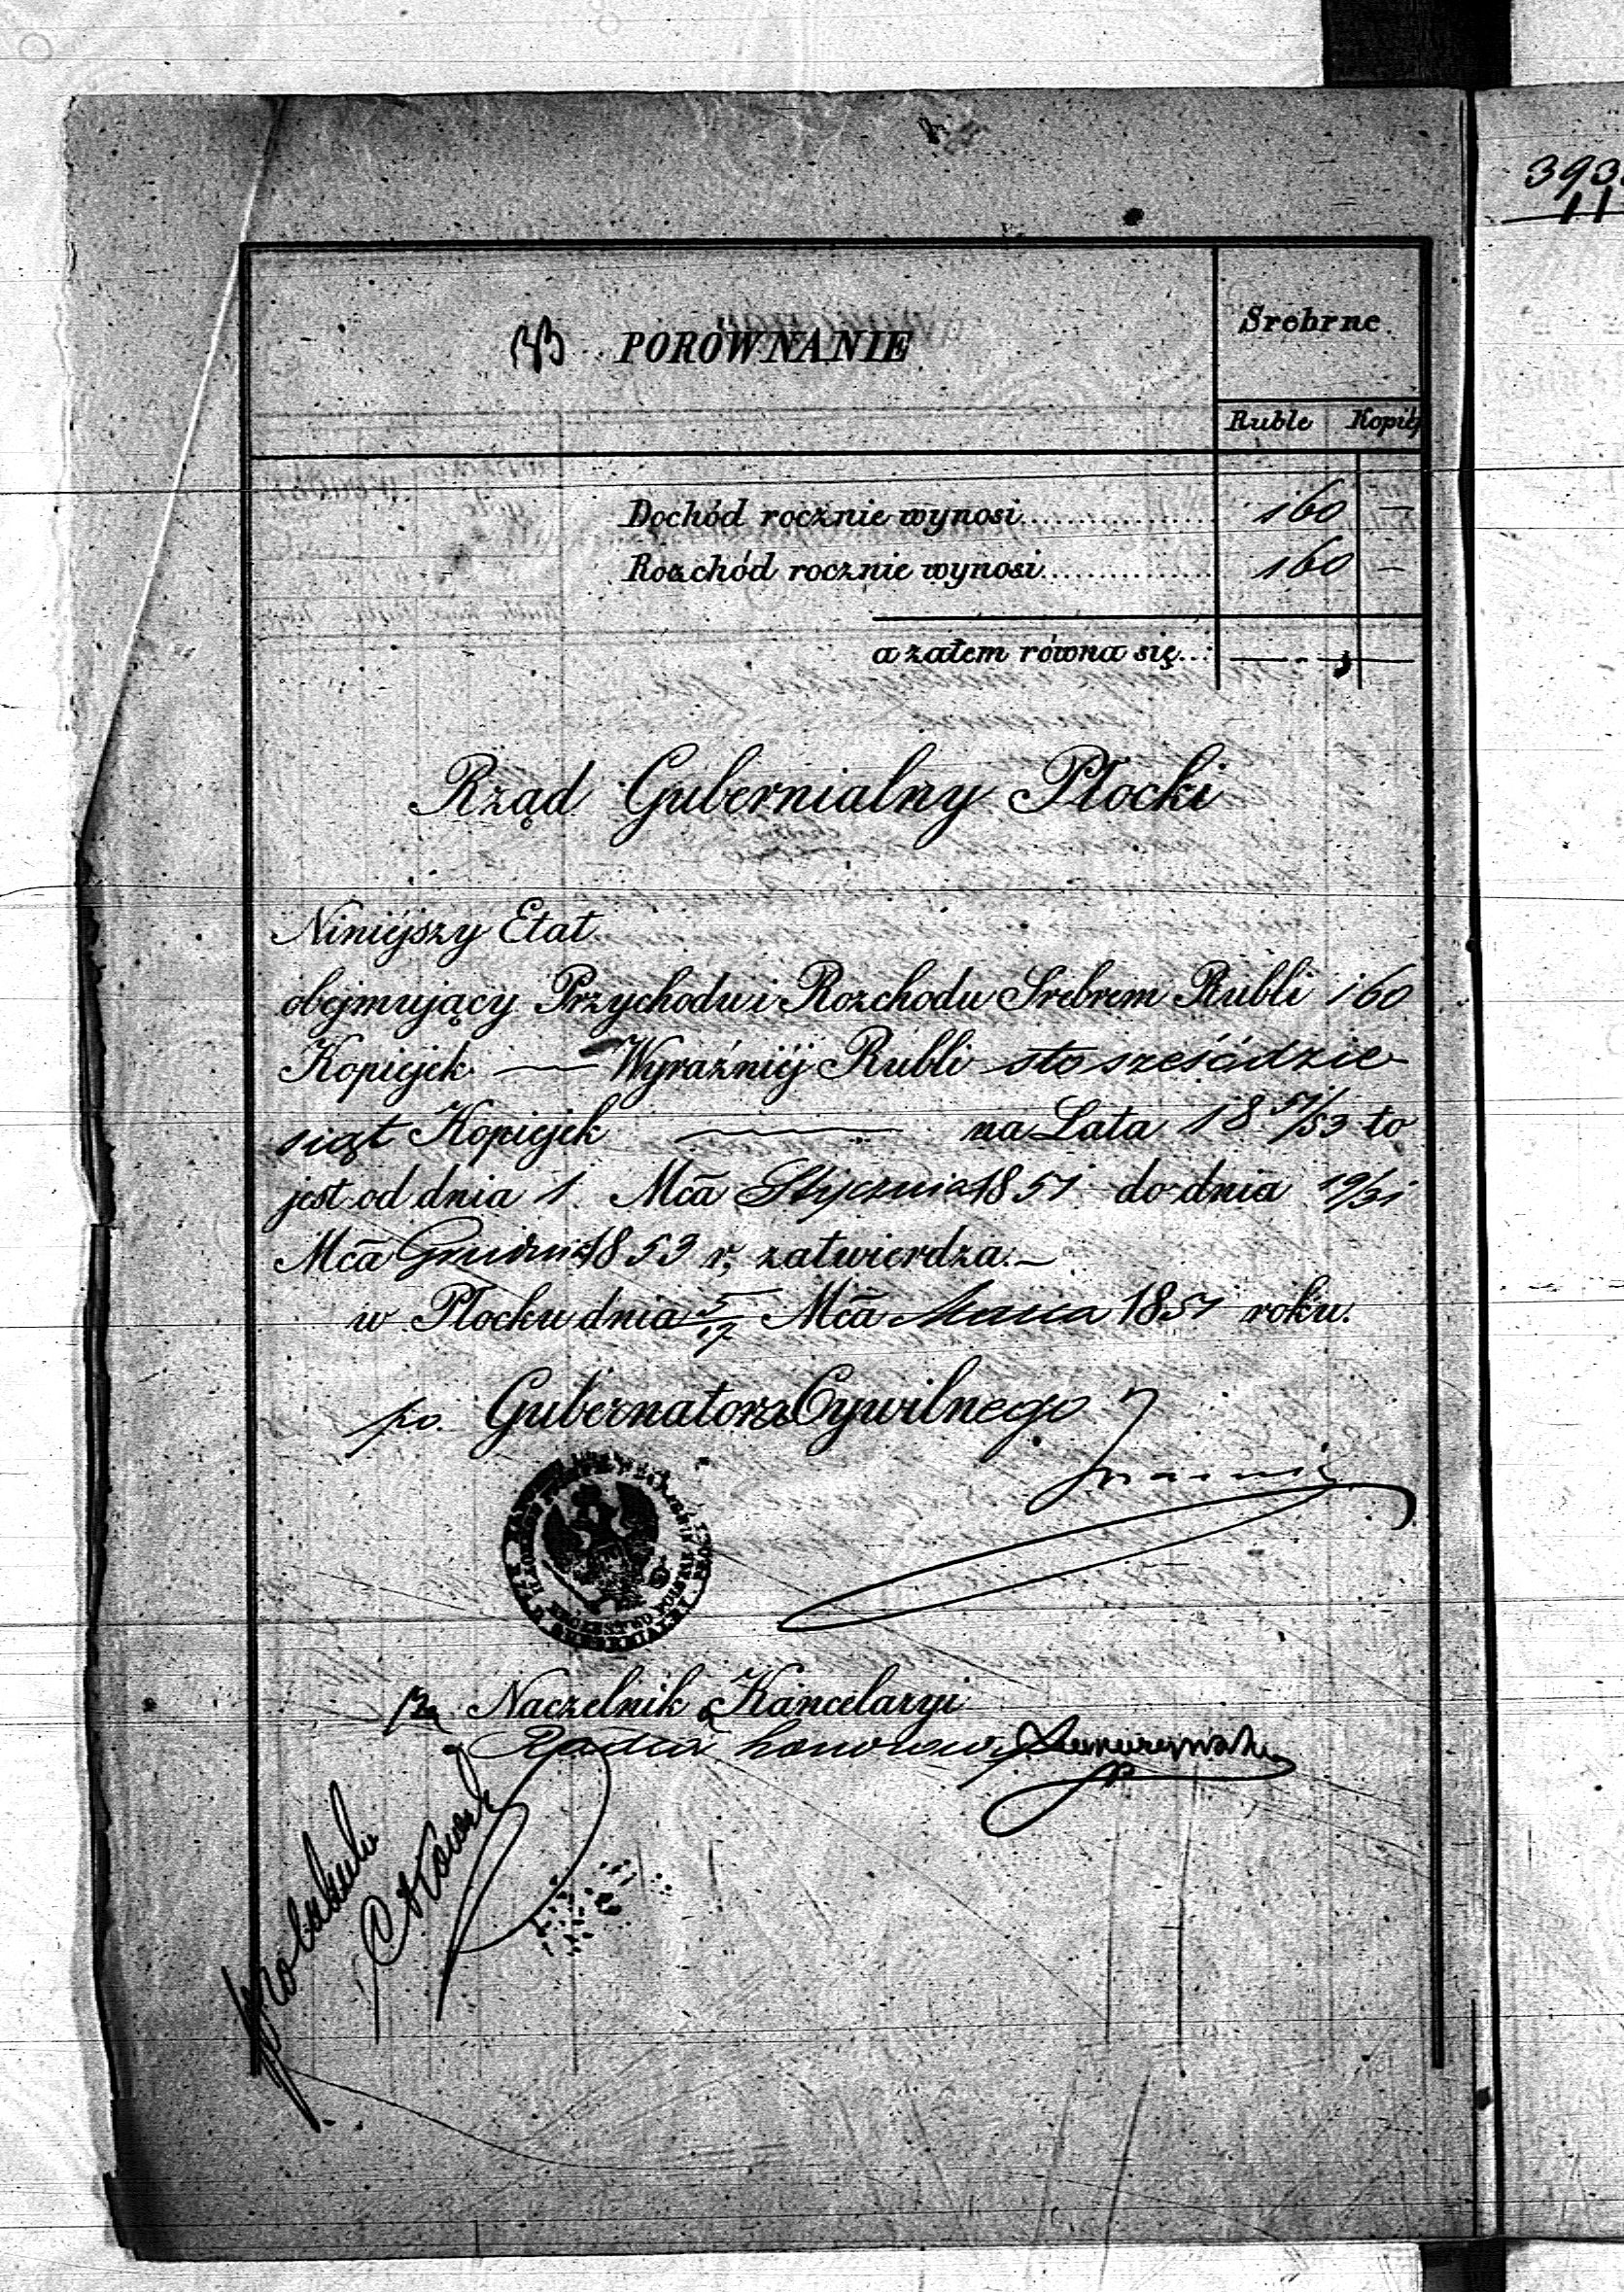 393
11
PORÓWNANIE
Srebrne.
Ruble Kopiej
Dochód rocznie wynosi.................. 160 —
Rozchód rocznie wynosi............... 160 —
a zatem równa się..:
Rząd Gubernialny Płocki
Niniejszy Etat
obejmujący Przychodu i Rozchodu Srebrem Rubli 160
Kopiejek — Wyraźniéj Rubli sto sześćdzie-
siąt Kopiejek — na Lata 18 51/53 to
jest od dnia 1 Mca Stycznia 1851 do dnia 19/31
Mca Grudnia 1853 r. zatwierdza.—
w Płocku dnia 5/17 Mca Marca 1851 roku.
po. Gubernatora Cywilnego
KRÓLESTWO POLSKIE
RZĄD GUBERNIALNY PŁOCKI
Naczelnik Kancelaryi
Radca honorowy